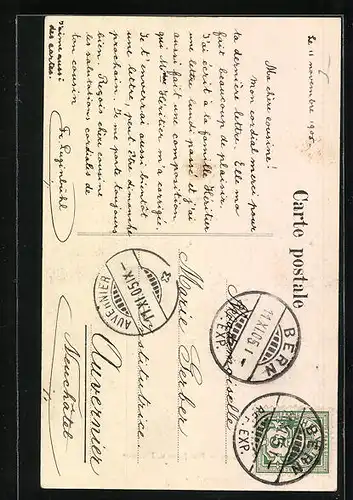 Carte postale
Le 11 novembre 1905.
Ma chère cousine!
Mon cordial merci pour
ta dernière lettre. Elle m'a
fait beaucoup de plaisir.
J'ai écrit à la famille Héritier
une lettre lundi passé et j'ai
aussi fait une composition
qui Mme Héritier m'a corrigée.
Je t'enverrai aussi bientôt
une lettre, peut être dimanche
prochain. Je me porte toujours
bien. Reçois chère cousine
les salutations cordiales de
ton cousin
J'aime aussi
des cartes.
Mademoiselle
Marie Gerber
Institutrice
Auvernier
Neuchâtel
BERN
11.XI.05
EXP.
AUVERNIER
11.XI.05.IX
BERN
EXP.
5